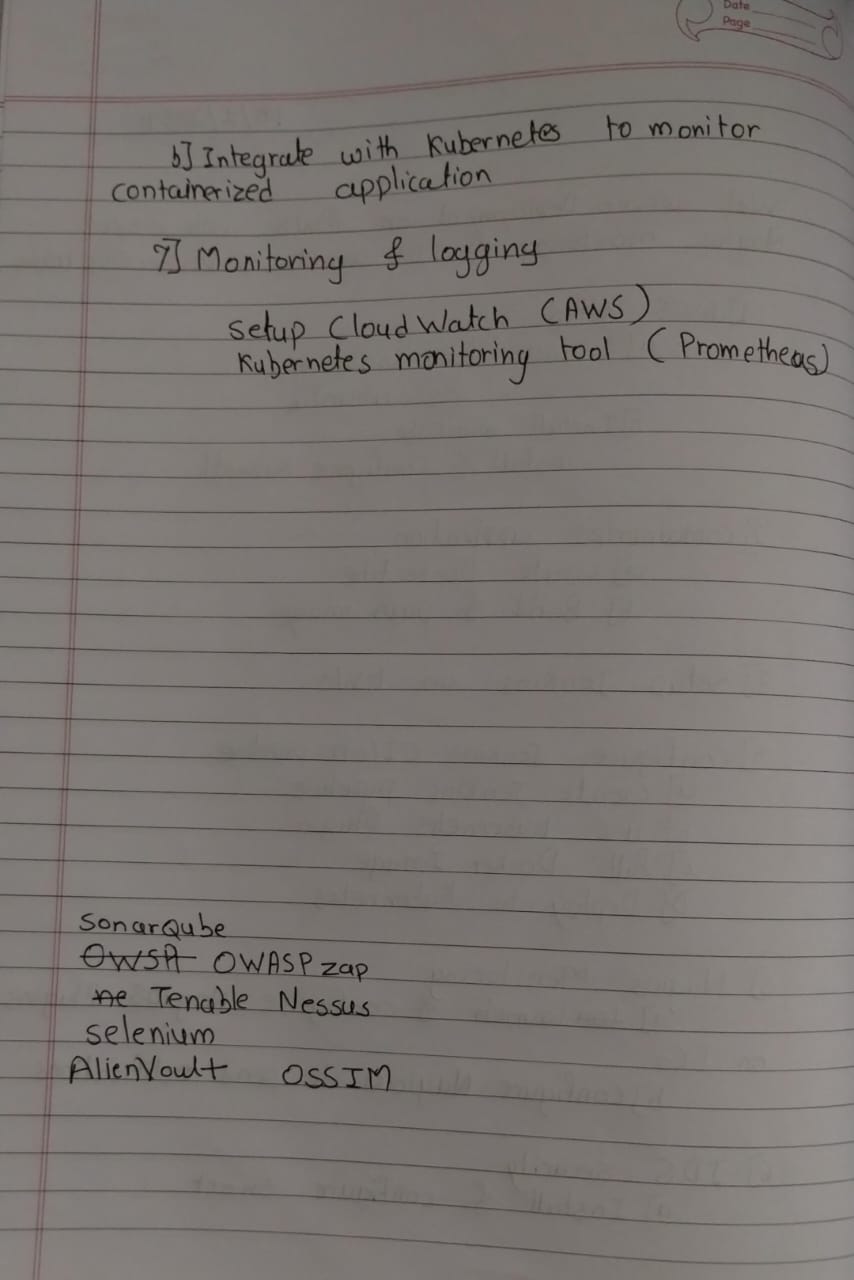 Date
Page
b] Integrate with Kubernetes to monitor
containerized application
7] Monitoring & logging
setup CloudWatch (AWS)
Kubernetes monitoring tool (Prometheas)
SonarQube
OWSA OWASP zap
ne Tenable Nessus
selenium
AlienVoult OSSIM